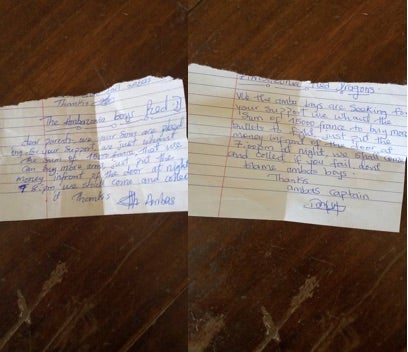 Thanks
The Ambazonia boys Red D
dear parents we your sons are
big for your support we just whant
the sum of 15000 francs that we
can buy more ammo just put the
money infront of the door at night
7 8 pm we shall come and collect
it Thanks Ambas
Red dragons
We the amba boys are seeking for
your support we whant the
sum of 15000 francs to buy more
bullets to fight just put the
money infront of the door at
7:00pm at night we shall come
and collect if you fail dont
blame ambas boys
Thanks
ambas captain